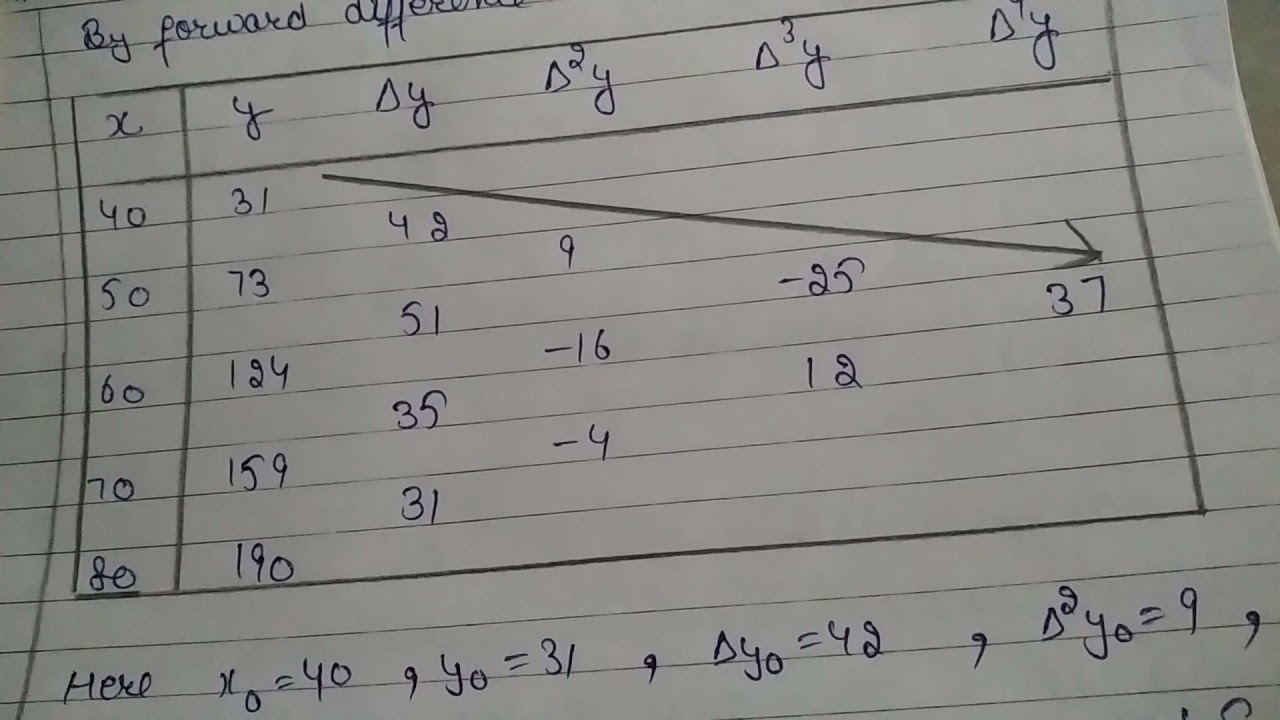 By forward difference
x y Δy Δ²y Δ³y Δ⁴y
40 31
42
9
50 73 -25 37
51
-16
60 124 12
35
-4
70 159
31
80 190
Here x₀ = 40 , y₀ = 31 , Δy₀ = 42 , Δ²y₀ = 9 ,